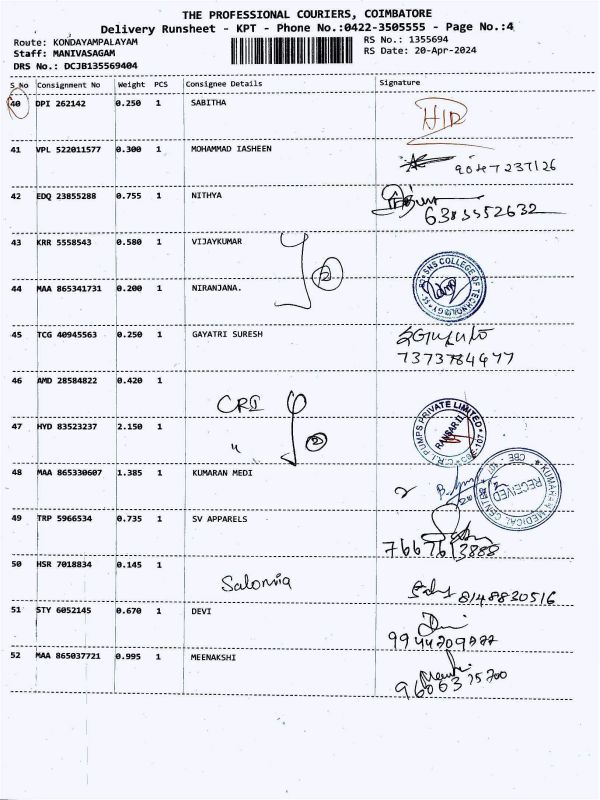 THE PROFESSIONAL COURIERS, COIMBATORE
Delivery Runsheet - KPT - Phone No.:0422-3505555 - Page No.:4
Route: KONDAYAMPALAYAM RS No.: 1355694
Staff: MANIVASAGAM RS Date: 20-Apr-2024
DRS No.: DCJB135569404
S No Consignment No Weight PCS Consignee Details Signature
40 DPI 262142 0.250 1 SABITHA
41 VPL 522011577 0.300 1 MOHAMMAD IASHEEN
9047237126
42 EDQ 23855288 0.755 1 NITHYA
6383552632
43 KRR 5558543 0.580 1 VIJAYKUMAR
2
44 MAA 865341731 0.200 1 NIRANJANA.
SNS COLLEGE OF TECHNOLOGY
45 TCG 40945563 0.250 1 GAYATRI SURESH
7373784977
46 AMD 28584822 0.420 1
CRI
47 HYD 83523237 2.150 1
" 2
C.R.I. PUMPS PRIVATE LIMITED CBE-107
48 MAA 865330607 1.385 1 KUMARAN MEDI
KUMARAN MEDICAL CENTRE CBE
RECEIVED
49 TRP 5966534 0.735 1 SV APPARELS
7667613888
50 HSR 7018834 0.145 1
8148830516
51 STY 6052145 0.670 1 DEVI
52 MAA 865037721 0.995 1 MEENAKSHI